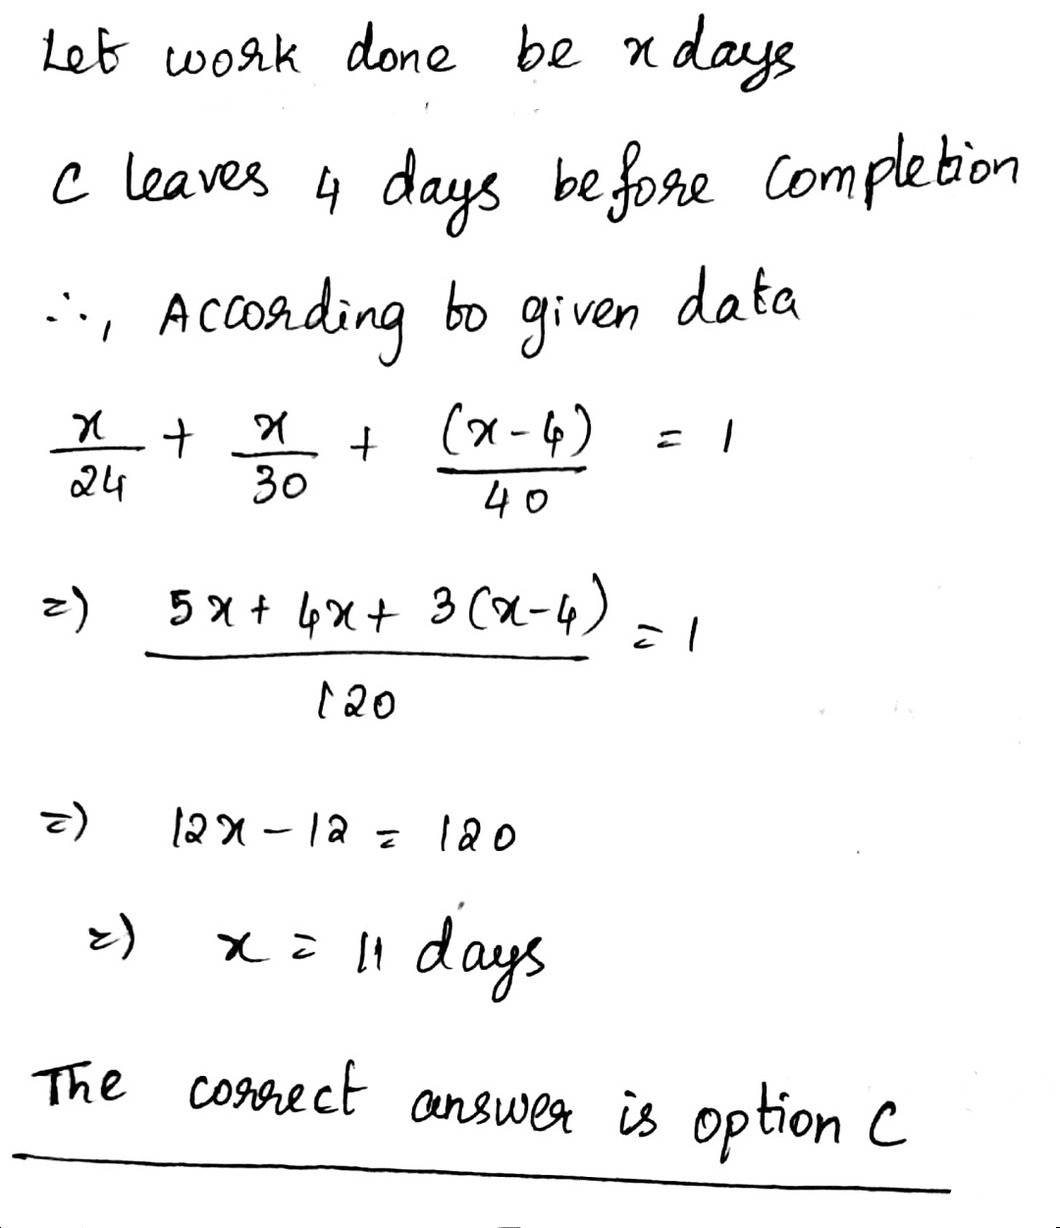 Let work done be x days
C leaves 4 days before completion
∴, According to given data
x/24 + x/30 + (x-4)/40 = 1
=) 5x + 4x + 3(x-4) / 120 = 1
=) 12x - 12 = 120
=) x = 11 days
The correct answer is option C